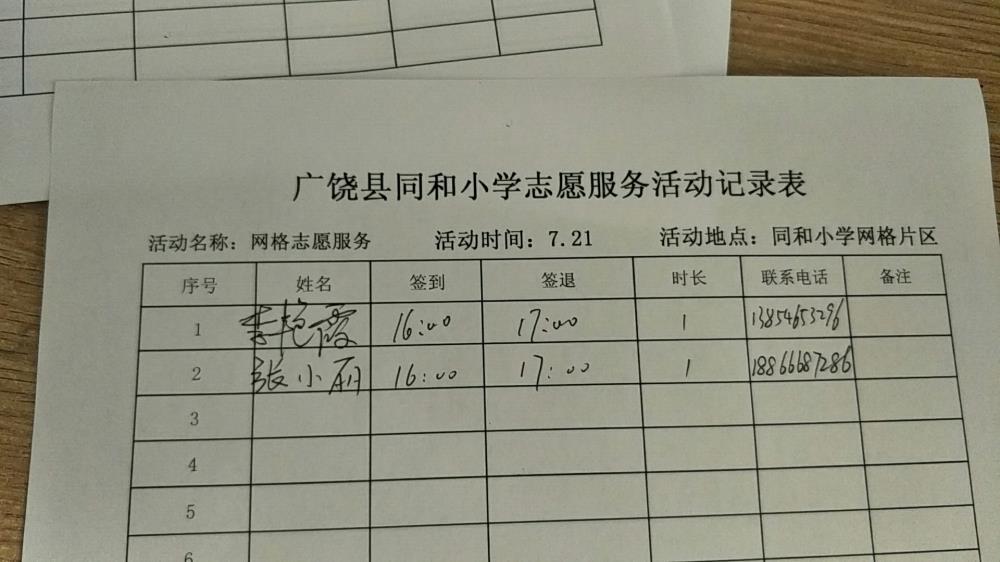 广饶县同和小学志愿服务活动记录表
活动名称：网格志愿服务 活动时间：7.21 活动地点：同和小学网格片区
序号 姓名 签到 签退 时长 联系电话 备注
1 李艳霞 16:00 17:00 1 13854653296
2 张小丽 16:00 17:00 1 18866687286
3
4
5
6